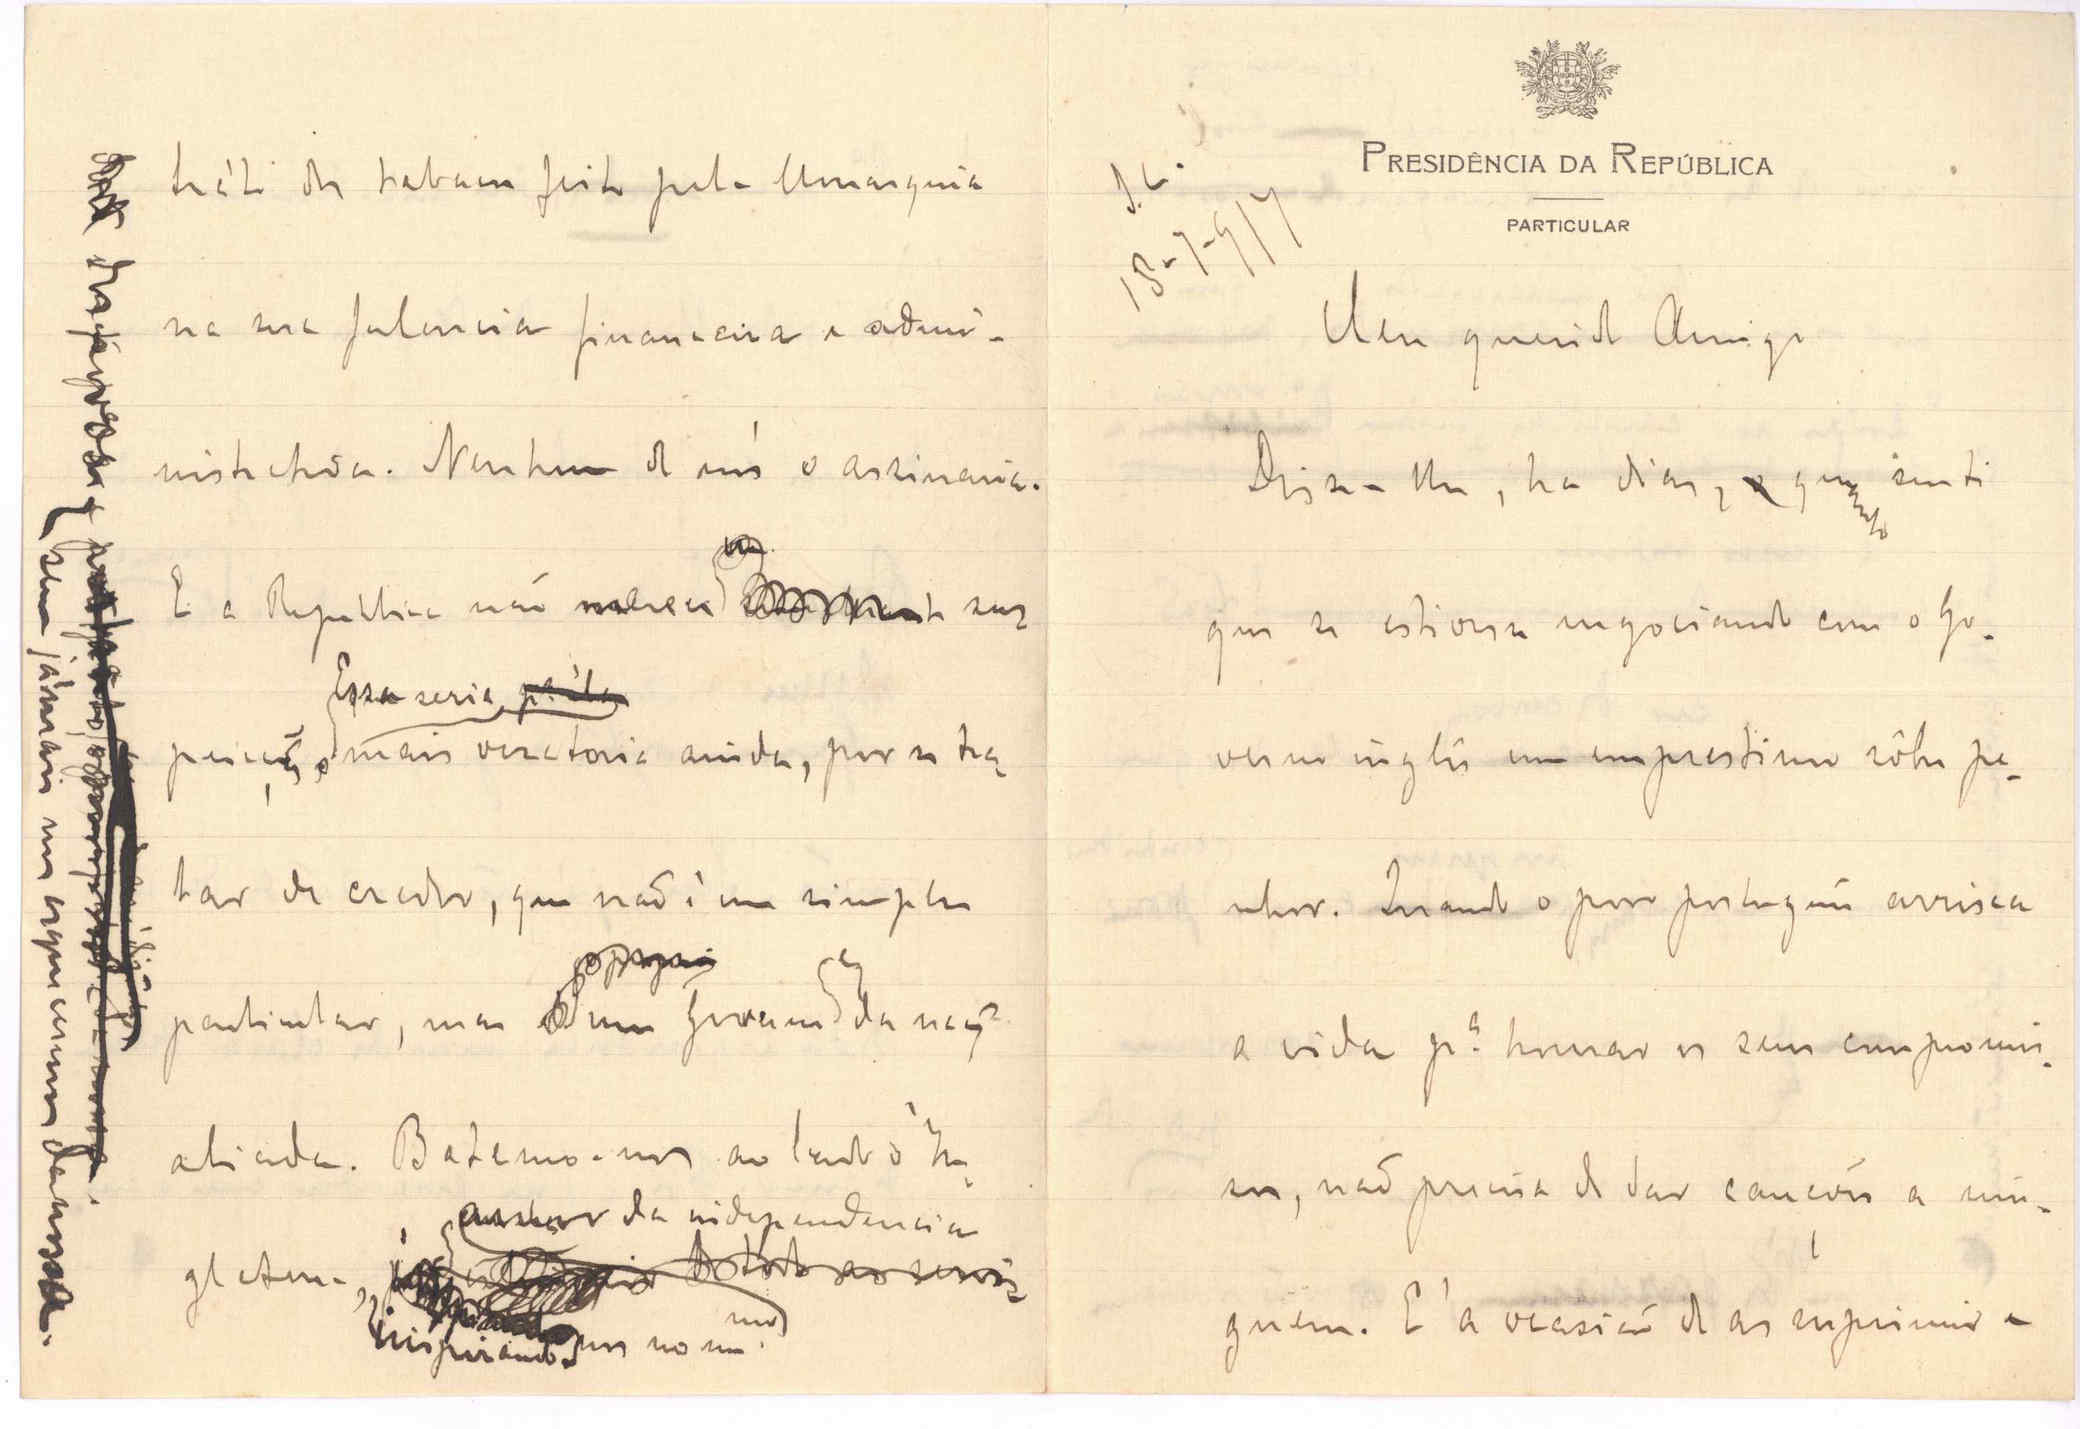 PRESIDÊNCIA DA REPÚBLICA
PARTICULAR
18-7-917
Meu querido Amigo
Disse-lhe, ha dias, quanto senti
que se estivesse negociando com o Go-
verno inglês um emprestimo sôbre pe-
nhor. Quando o povo português arrisca
a vida pª honrar os seus compromis-
sos, não precisa de dar cauções a nin-
guem. E' a ocasião de as suprimir e
tráto do tabaco feito pela Monarquia
na sua falencia financeira e admi-
nistrativa. Nenhum de nós o assinaria.
E a Republica não merece sus-
Essa seria
peição mais vexatoria ainda, por se tra-
tar de credor, que não é um simples
particular, mas um Governo da nação
aliada. Batemo-nos ao lado da In-
amor da independencia
glaterra,
inspirando-nos no
sem jámais nos esquecermos da nossa.